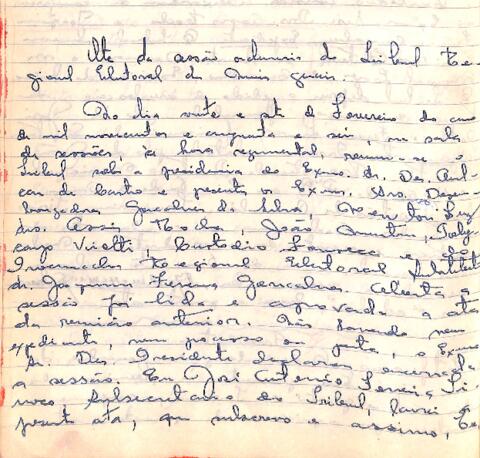 Ata da sessão ordinaria do Tribunal Re-
gional Eleitoral de Minas Gerais.
Ao dia vinte e sete de Fevereiro do ano
de mil novecentos e cinquenta e seis, na sala
de sessões, à hora regimental, reuniu-se o
Tribunal sob a presidencia do Exmo. Sr. Des.
de Castro e presentes os Exmos. Srs. Desem-
bargadores Gonçalves da Silva,
drs. Assis Rocha, João Martins, Poly-
carpo Viotti, Custodio e do
Procurador Regional Eleitoral Substituto
dr. Joaquim Ferreira Gonçalves. Aberta a
sessão foi lida e aprovada a ata
da reunião anterior. Não havendo nem
expediente, nem processo em pauta, o Exmo
Sr. Des. Presidente declarou encerrada
a sessão. Eu, José Antonio Pereira
Subsecretario do Tribunal, lavrei a
presente ata, que subscrevo e assino,